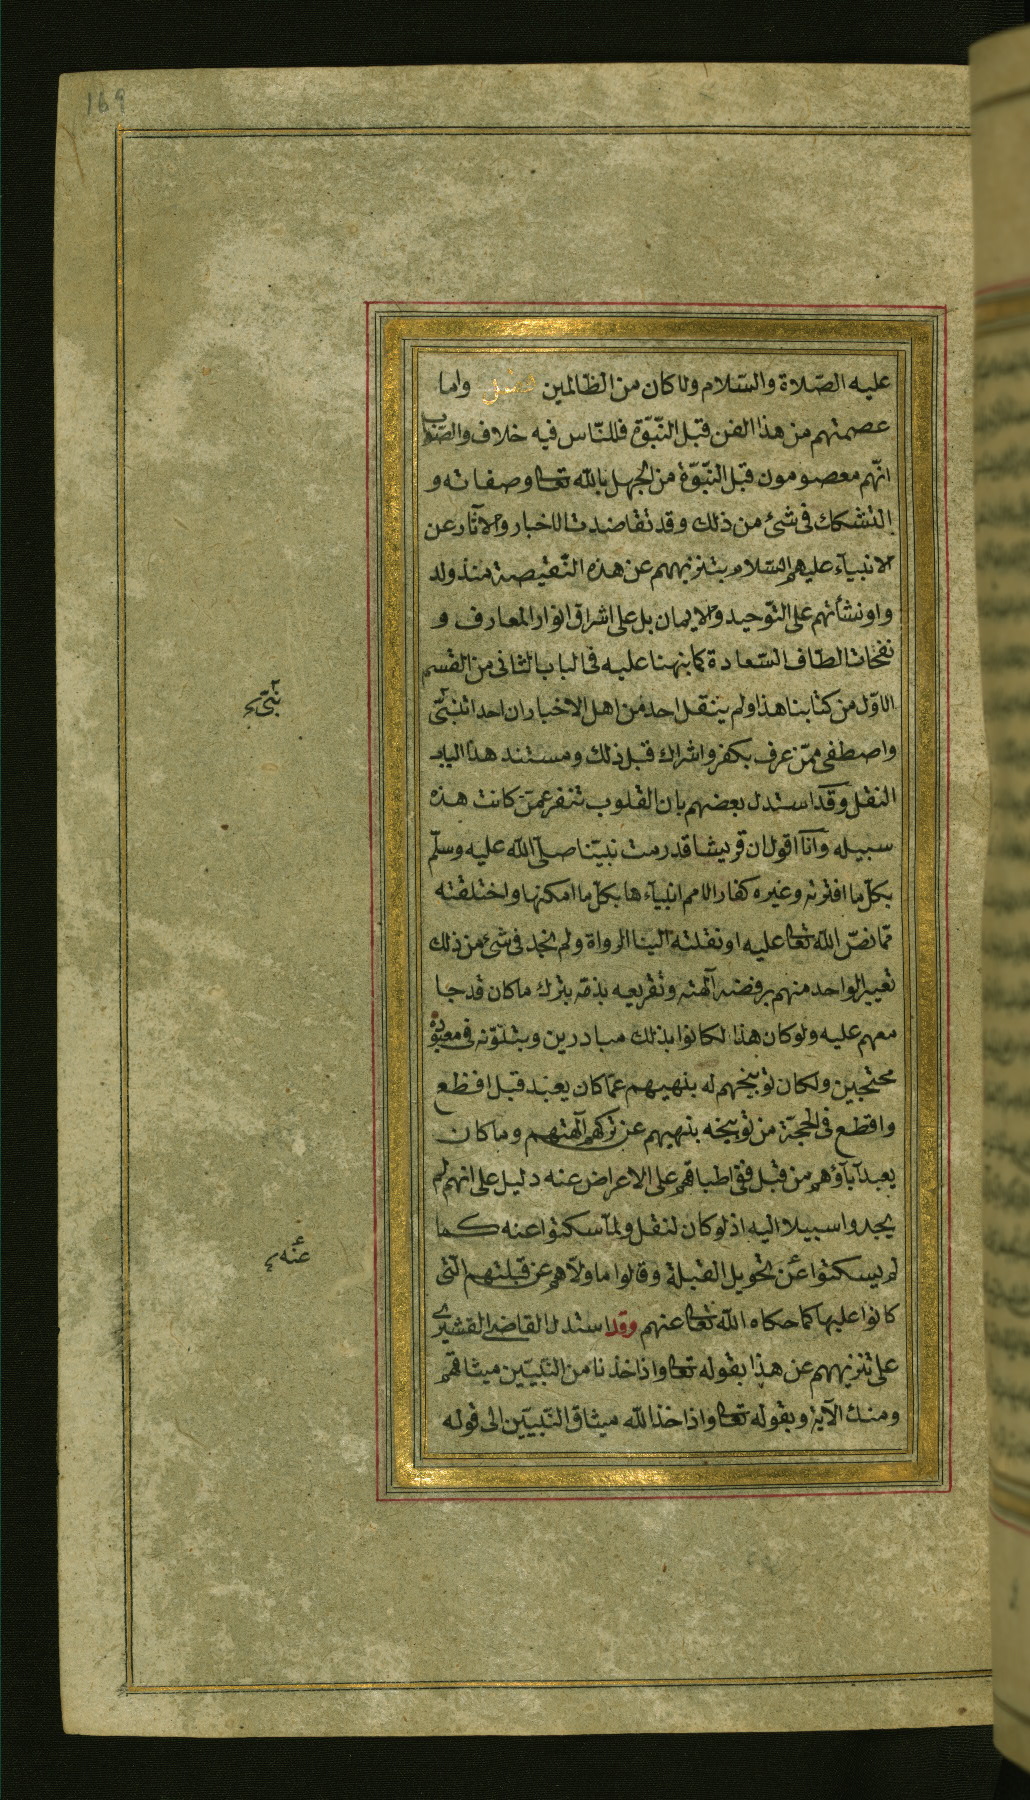 169
عليه الصّلاة والسّلام ولا كان من الظالمين فصل واما
عصمتهم من هذا الفن قبل النّبوّة فللنّاس فيه خلاف والصّواب
انّهم معصومون قبل النّبوّة من الجهل بالله تعالى وصفاته و
التشكك فى شئ من ذلك وقد تقاضدت الاخبار والآثار عن
الانبيآء عليهم السّلام بتنزيههم عن هذه النّقيصة منذ ولد
واونشأتهم على التّوحيد والايمان بل على اشراق انوار المعارف و
نفحات الطاف السّعادة كما نبهنا عليه فى الباب الثانى من القسم
الاوّل من كتابنا هذا ولم ينقل احد من اهل الاخبار ان احدا تنبّئ
واصطفى ممّن عرف بكفر واشراك قبل ذلك ومستند هذا الباب
النقل وقد استدل بعضهم بان القلوب تنفر عمّن كانت هذه
سبيله وانا اقول ان قريشا قد رمت نبيّنا صلّى الله عليه وسلّم
بكلّ ما افترته وغيره كفار الامم انبيآءها بكلّ ما امكنها واختلقته
ممّا نصّ الله تعالى عليه او نقلته الينا الرواة ولم نجد فى شئ من ذلك
تعييرا لواحد منهم برفضه آلهته وتقريعه بذمّه بترك ما كان قد جا
معهم عليه ولو كان هذا لكانوا بذلك مبادرين وبتلوّنه فى معبوده
محتجين ولكان توبيخهم له بنهيهم عمّا كان يعبد قبل افظع
واقطع فى الحجّة من توبيخه بنهيهم عن تركهم آلهتهم وما كان
يعبد آباؤهم من قبل ففى اطباقهم على الاعراض عنه دليل على انهم لم
يجدوا سبيلا اليه اذ لو كان لنقل ولما سكتوا عنه كما
لم يسكتوا عن تحويل القبلة وقالوا ما ولّاهم عن قبلتهم الّتى
كانوا عليها كما حكاه الله تعالى عنهم وقد استدل القاضى القشيرى
على تنزيههم عن هذا بقوله تعالى واذ اخذنا من النّبيّين ميثاقهم
ومنك الآية وبقوله تعالى واذ اخذ الله ميثاق النّبيّين الى قوله
نبّئ
عنه